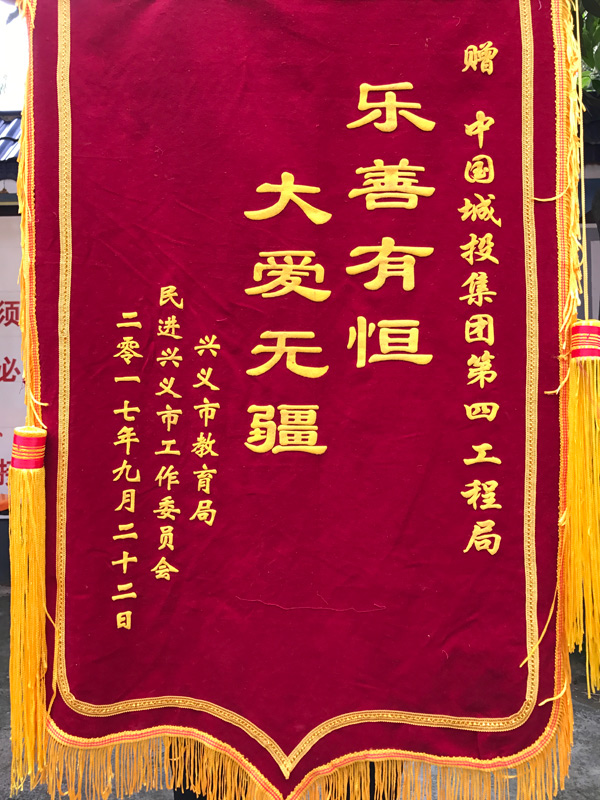 赠 中国城投集团第四工程局
乐善有恒
大爱无疆
兴义市教育局
民进兴义市工作委员会
二零一七年九月二十二日
须
必